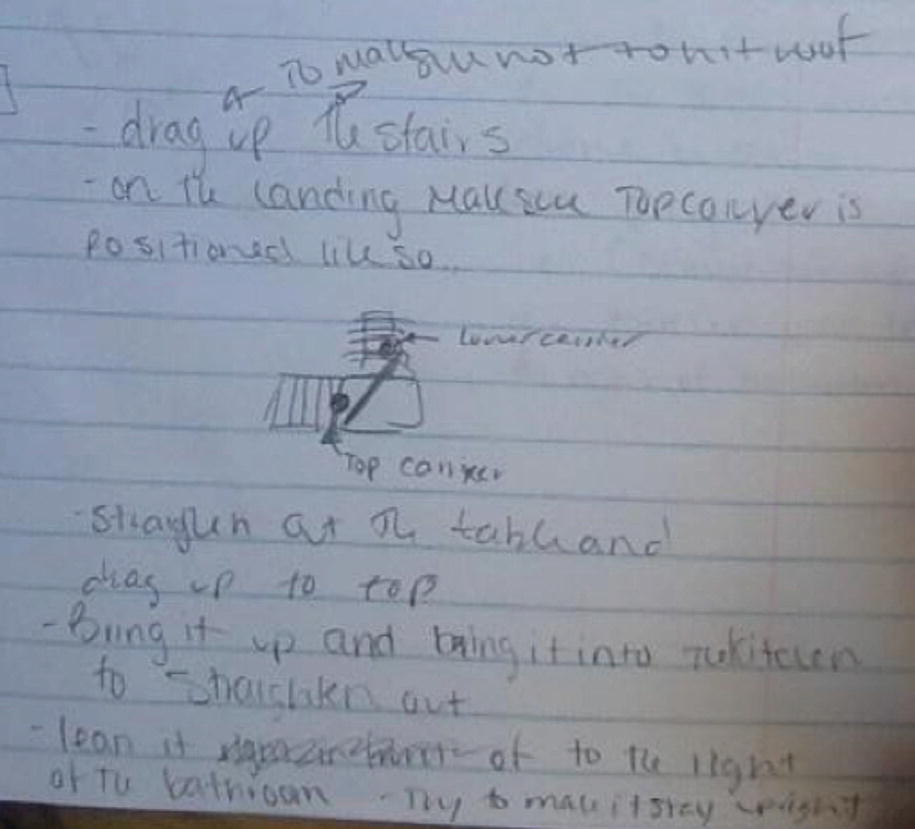 To make sure not to hit roof
- drag up the stairs
- on the landing make sure Top carryer is
positioned like so...
Lower carrier
Top carryer
- straighten at the table and
drag up to top
- Bring it up and bring it into the kitchen
to straighten out
- lean it of to the right
of the bathroom - Try to make it stay upright